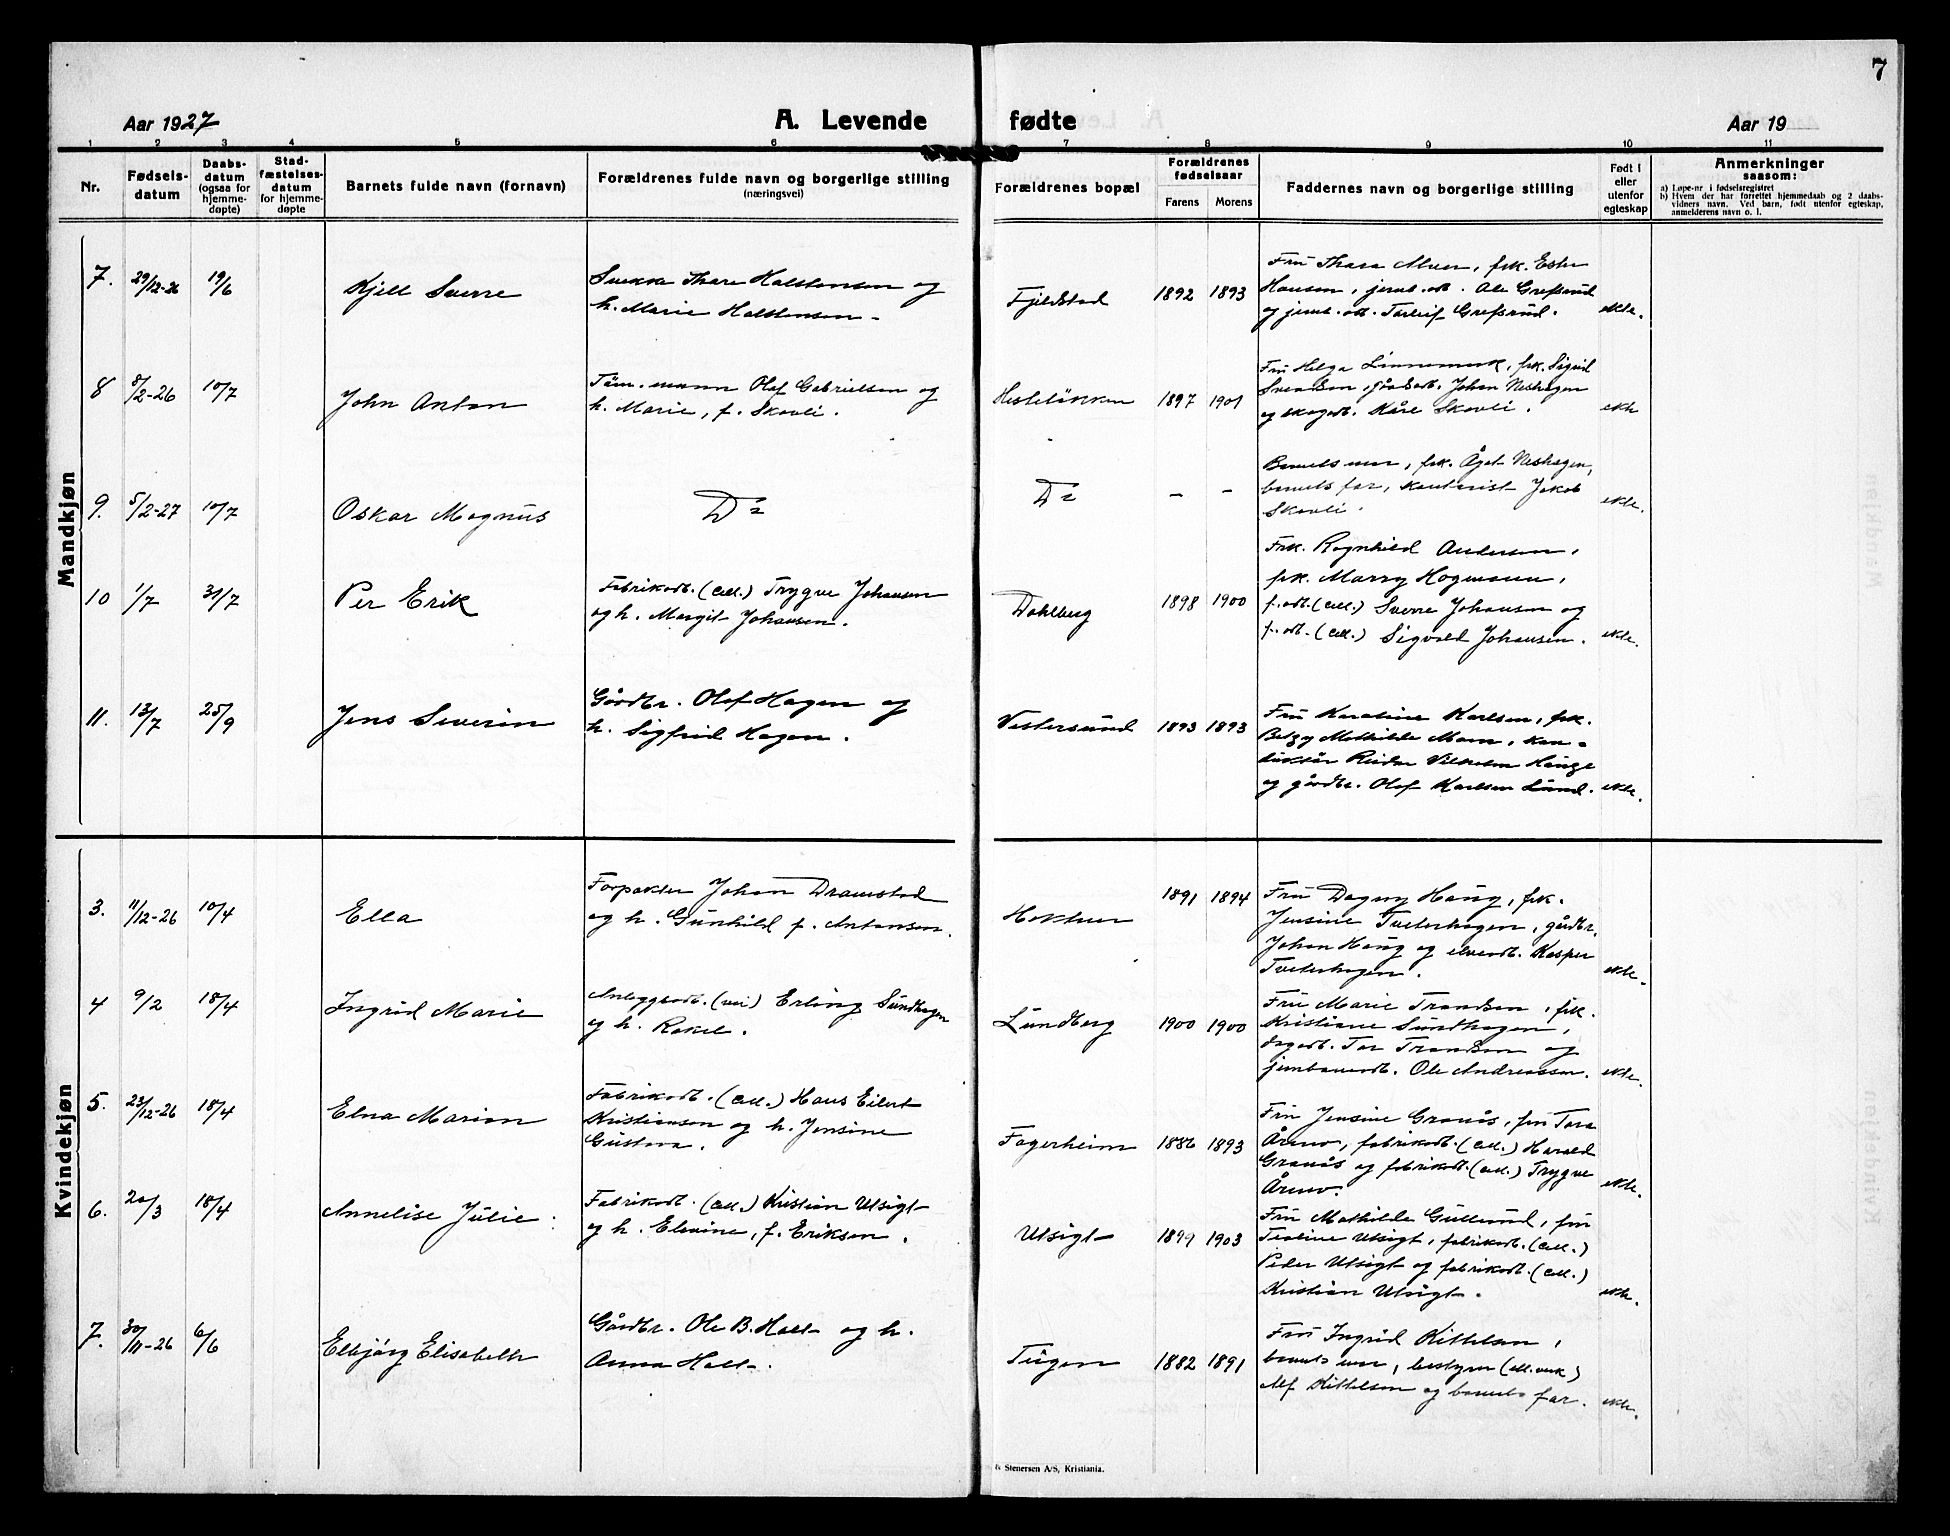 7
Aar 1927
A. Levende
fødte
Aar 19
1 2 3 4 5 6 7 8 9 10 11
Nr.
Fødsels-
datum
Daabs-
datum
(ogsaa for
hjemme-
døpte)
Stad-
fæstelses-
datum
for hjemme-
døpte
Barnets fulde navn (fornavn)
Forældrenes fulde navn og borgerlige stilling
(næringsvei)
Forældrenes bopæl
Forældrenes
fødselsaar
Farens Morens
Faddernes navn og borgerlige stilling
Født i
eller
utenfor
egteskap
Anmerkninger
saasom:
a) Løpe-nr i fødselsregistret
b) Hvem der har forrettet hjemmedaab og 2 daabs-
vidners navn. Ved barn, født utenfor egteskap,
anmelderens navn o. l.
Mandkjøn
7. 29/12-26 19/6 Kjell Sverre
Thare Halstensen og
h. Marie Halstensen.
Fjeldstad 1892 1893
Fru Thara frk. Ester
Hansen, jernb.arb. Ole Grefsrud
og jernb.arb. Torleif Grefsrud. ekte.
8 8/2-26 10/7 John Anton
Töm.mann Olaf Gabrielsen og
h. Marie, f. Skovli.
Hesteløkken 1897 1901
Fru Helga Linnemork, frk. Sigrid
Svendsen, gårdarb. Johan Neshagen
og skogarb. Kåre Skovli. ekte
9. 5/2-27 10/7 Oskar Magnus
Do
Do - -
Barnets mor, frk. Ågot Neshagen,
barnets far, kontorist Jakob
Skovli. ekte.
10 1/7 31/7 Per Erik
Fabrikarb. (cell.) Trygve Johansen
og h. Margit Johansen.
Dahlberg 1898 1900
Frk. Ragnhild Andersen,
frk. Marry Hogmoen,
f.arb. (cell.) Sverre Johansen og
f.arb. (cell.) Sigvald Johansen. ekte.
11. 13/7 25/9 Jens Severin
Gårdbr. Olaf Hagen og
h. Sigfrid Hagen.
Vestersund 1893 1893
Fru Karoline Karlsen, frk.
Betzy Mathilde Moen, kon-
duktör Reidar Vilhelm Hauge
og gårdbr. Olaf Karlsen Lund. ekte.
Kvindekjøn
3. 11/12-26 10/4 Ella
Forpakter Johan Dramstad
og h. Gunhild f. Antonsen.
1891 1894
Fru Dagny Haug, frk.
Jensine Tveterhagen, gårdbr.
Johan Haug og elvearb. Kasper
Tveterhagen. ekte.
4 9/2 18/4 Ingrid Marie
Anleggsarb. (vei) Erling Sundhagen
og h. Rakel.
Lundberg 1900 1900
Fru Marie Trondsen, frk.
Kristiane Sundhagen,
dagarb. Tor Trondsen og
jernbanearb. Ole Andreassen. ekte.
5. 23/12-26 18/4 Elna Marion
Fabrikarb. (cell.) Hans Eilert
Kristiansen og h. Jensine
Gustava.
Fagerheim 1886 1893
Fru Jensine Granås, fru Tora
Årmo, fabrikarb. (cell.) Harald
Granås og fabrikarb. (cell.) Trygve
Årmo. ekte.
6. 20/3 18/4 Annelise Julie.
Fabrikarb. (cell.) Kristian Utsigt
og h. Elevine, f. Eriksen.
Utsigt 1899 1903
Fru Mathilde Gullund, fru
Teoline Utsigt, fabrikarb. (cell.)
Peder Utsigt og fabrikarb. (cell.)
Kristian Utsigt. ekte.
7. 30/11-26 6/6 Elbjörg Elisabeth
Gårdbr. Ole B. Holt og h.
Anna Holt.
Tugen 1882 1891
Fru Ingrid Kittelsen,
barnets mor, bestyrer (el.verk)
Alf Kittelsen og barnets far. ekte.
& Stenersen A/S, Kristiania.